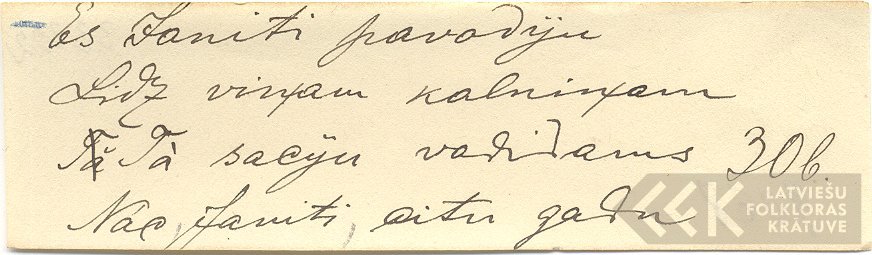 Es Janiti pavadiju
Lidz viņam kalniņam
Tā Tà sacyu vadidams 306.
Nāc, Janiti, citu gadu
LATVIEŠU
FOLKLORAS
KRĀTUVE